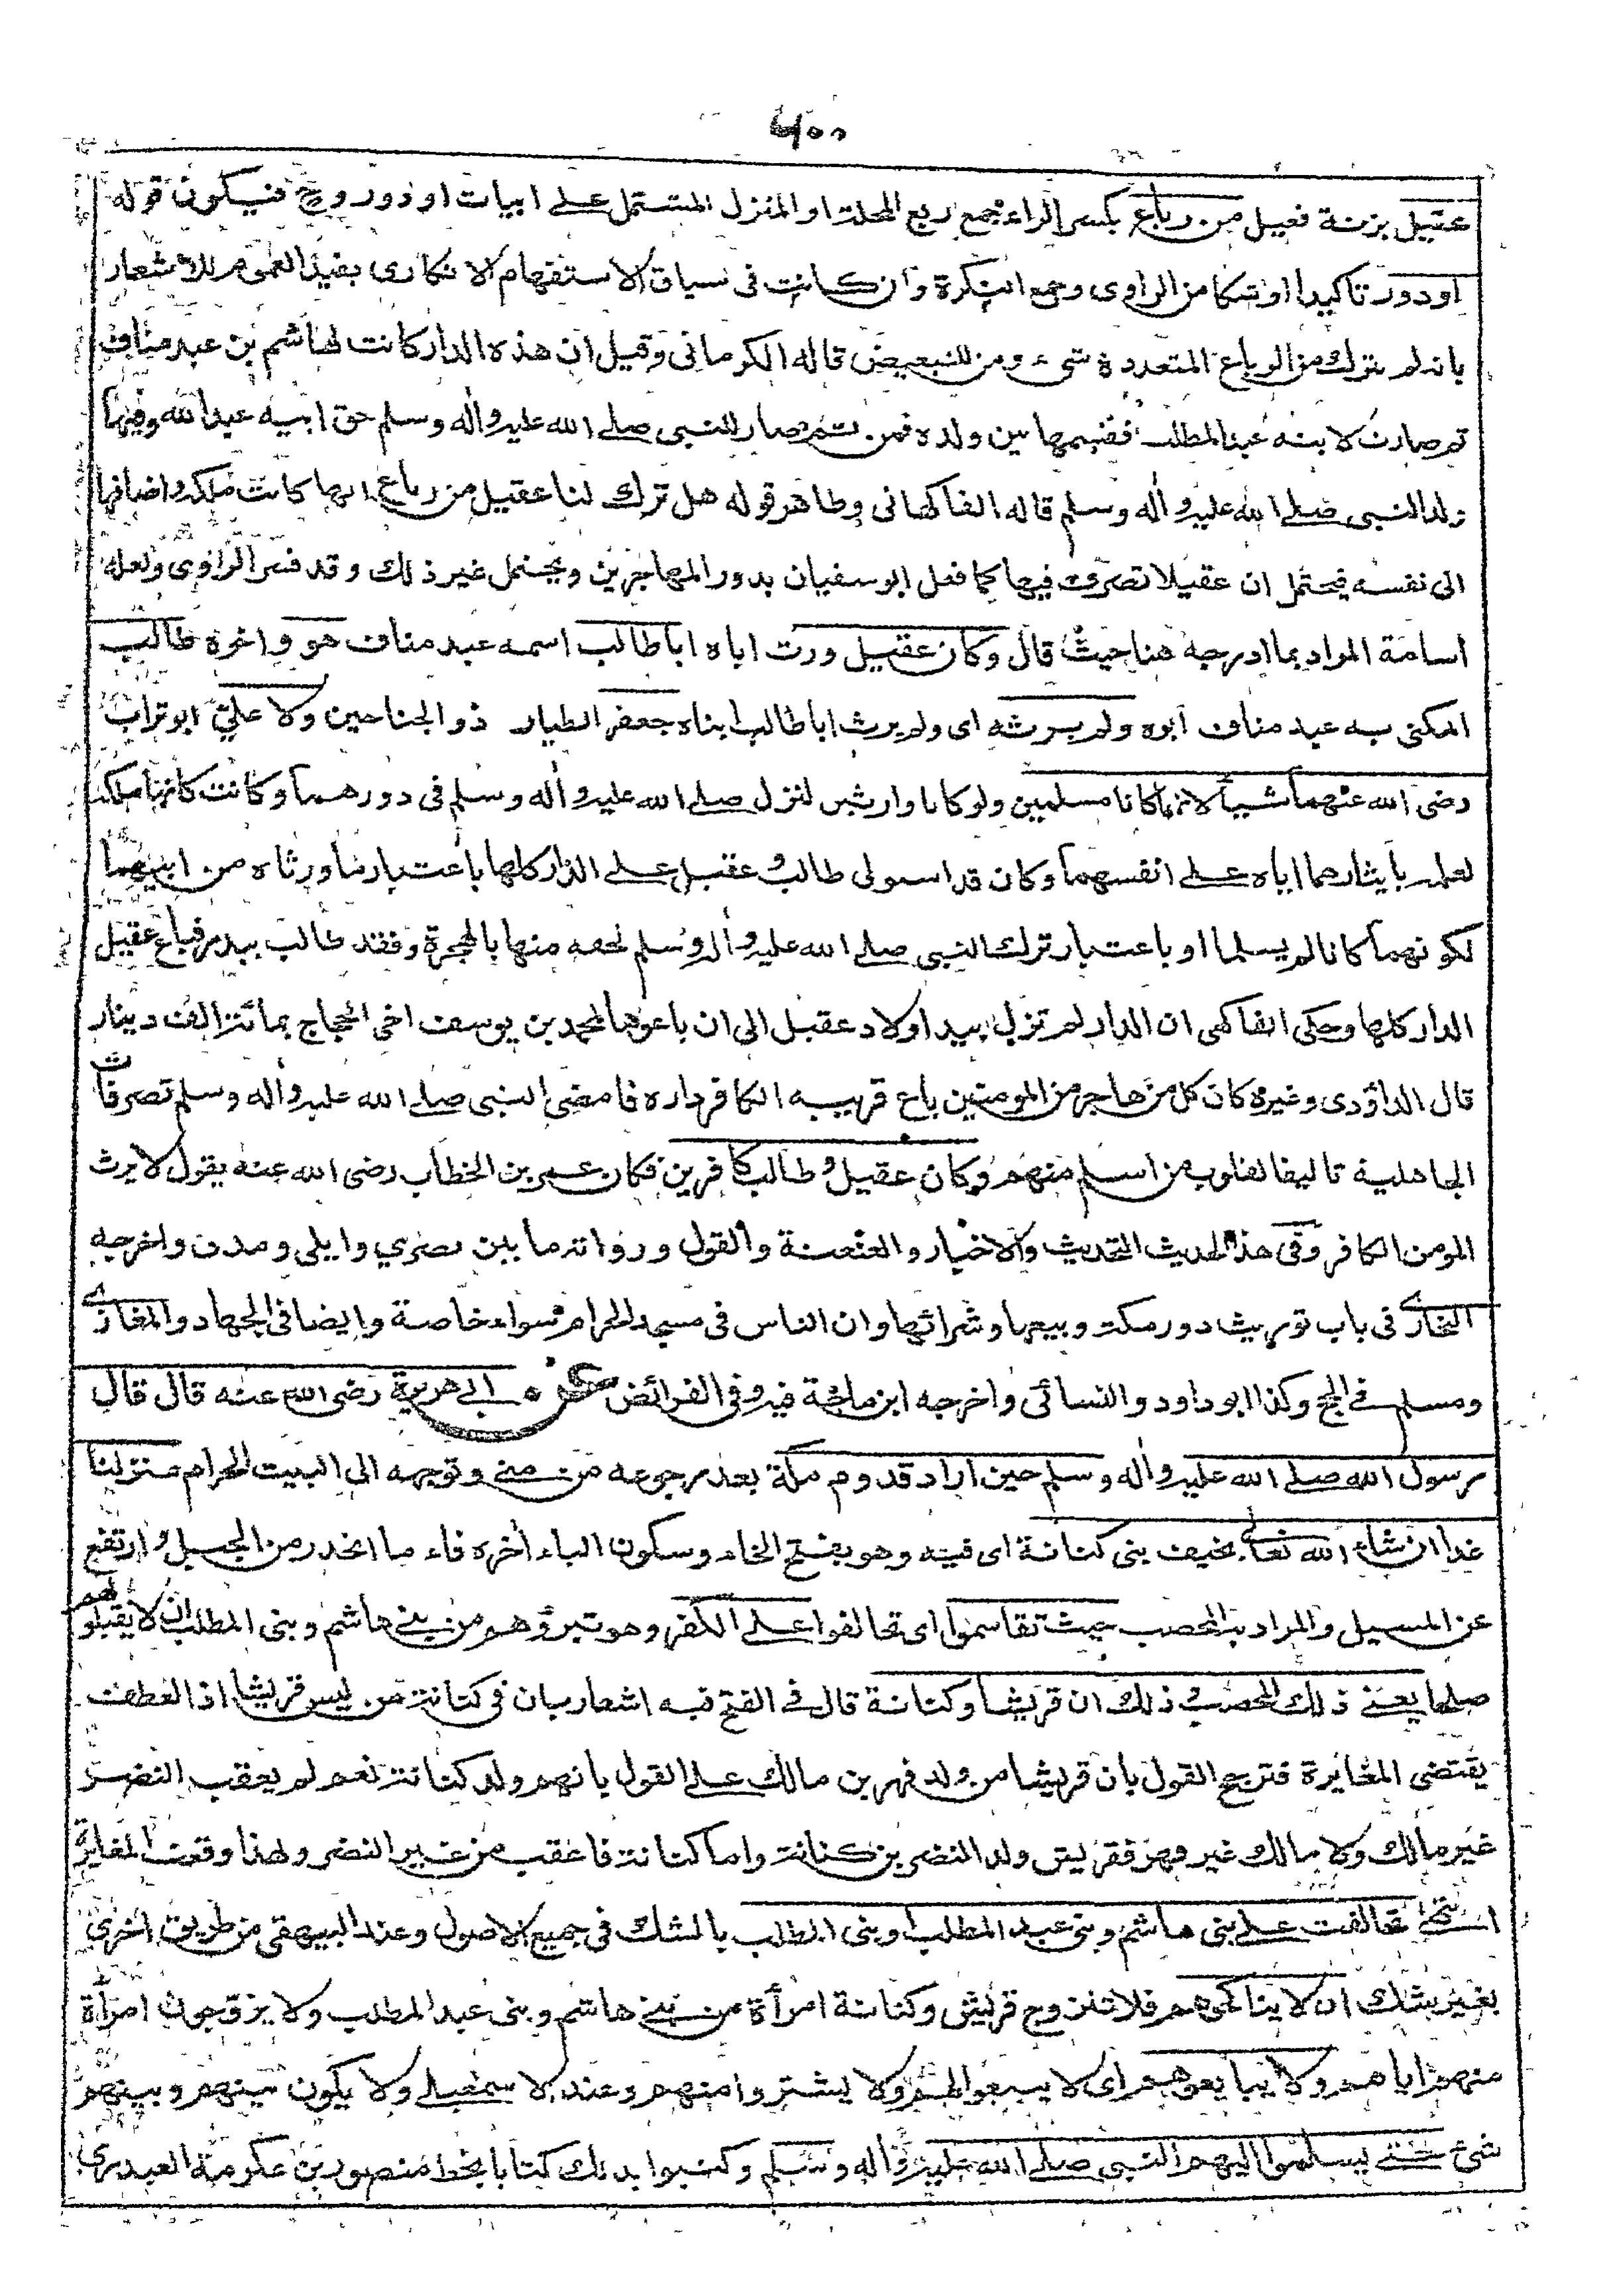 ٤٠٠
عقيل بزنة فعيل من رباع بكسر الراء جمع ربع المحلة او المنزل المشتمل على ابيات او دور وح فيكون قوله
او دور تاكيدا او شكا من الراوى وجمع النكرة وان كانت فى سياق الاستفهام الانكارى يفيد العموم للاشعار
بانه لم يترك من الرباع المتعددة شىء ومن للتبعيض قاله الكرمانى وقيل ان هذه الدار كانت لهاشم بن عبد مناف
ثم صارت لابنه عبد المطلب فقسمها بين ولده فمن ثم صار للنبى صلے الله عليه واٰله وسلم حق ابيه عبد الله وفيها
ولد النبى صلے الله عليه واٰله وسلم قاله الفاكهانى وظاهر قوله هل ترك لنا عقيل من رباع انها كانت ملكه واضافها
الى نفسه فيحتمل ان عقيلا تصرف فيها كما فعل ابو سفيان بدور المهاجرين ويحتمل غير ذلك وقد فسر الراوى ولعله
اسامة المراد بما ادرجه هنا حيث قال وكان عقيل ورث اباه ابا طالب اسمه عبد مناف هو واخوه طالب
المكنى به عبد مناف ابوه ولم يرثه اى ولم يرث ابا طالب ابناه جعفر الطيار ذو الجناحين ولا علىّ ابو تراب
رضى الله عنهما شيأ لانهما كانا مسلمين ولو كانا وارثين لنزل صلے الله عليه واٰله وسلم فى دورهما وكانت كانها ملكه
لعلمه بايثارهما اياه على انفسهما وكان قد استولى طالب وعقيل على الدار كلها باعتبار ما ورثاه من ابيهما
لكونهما كانا لم يسلما او باعتبار ترك النبى صلے الله عليه واٰله وسلم لحقه منها بالهجرة وفقد طالب ببدر فباع عقيل
الدار كلها وحكى الفاكهى ان الدار لم تزل بيد اولاد عقيل الى ان باعوها لمحمد بن يوسف اخى الحجاج بمائة الف دينار
قال الداؤدى وغيره كان كل من هاجر من المومنين باع قريبه الكافر داره فامضى النبى صلے الله عليه واٰله وسلم تصرفات
الجاهلية تاليفا لقلوب من اسلم منهم وكان عقيل وطالب كافرين فكان عمر بن الخطاب رضى الله عنه يقول لا يرث
المومن الكافر وفى هذا الحديث التحديث والاخبار والعنعنة والقول ورواته ما بين بصري وايلى ومدنى واخرجه
البخارى فى باب توريث دور مكة وبيعها وشرائها وان الناس فى مسجد الحرام سواء خاصة وايضا فى الجهاد والمغازى
ومسلم فى الحج وكذا ابو داود والنسائى واخرجه ابن ماجة فيه وفى الفرائض عن ابى هريرة رضى الله عنه قال قال
رسول الله صلے الله عليه واٰله وسلم حين اراد قدوم مكة بعد رجوعه من منى وتوجهه الى البيت الحرام منزلنا
غدا ان شاء الله تعالى بخيف بنى كنانة اى فيه وهو بفتح الخاء وسكون الياء اٰخره فاء ما انحدر من الجبل وارتفع
عن المسيل والمراد به المحصب حيث تقاسموا اى تحالفوا على الكفر وهو تبرؤهم من بنى هاشم وبنى المطلب ان لا يقبلوا لهم
صلحا يعنى ذلك المحصب فى ذلك ان قريشا وكنانة قال فى الفتح فيه اشعار بان فى كنانة من ليس قريشا اذ العطف
يقتضى المغايرة فترجح القول بان قريشا من ولد فهر بن مالك على القول بانهم ولد كنانة نعم لم يعقب النضر
غير مالك ولا مالك غير فهر فقريش ولد النضر بن كنانة واما كنانة فاعقب من غير النضر ولهذا وقعت المغايرة
انتهى تحالفت على بنى هاشم وبنى عبد المطلب او بنى المطلب بالشك فى جميع الاصول وعند البيهقى من طريق اخرى
بغير شك ان لا يناكحوهم فلا تتزوج قريش وكنانة امرأة من بنى هاشم وبنى عبد المطلب ولا يزوجون امرأة
منهم اياهم ولا يبايعوهم اى لا يبيعوا لهم ولا يشتروا منهم وعند الاسمعيلى ولا يكون بينهم وبينهم
شئ حتى يسلموا اليهم النبى صلے الله عليه واٰله وسلم وكتبوا بذلك كتابا بخط منصور بن عكرمة العبدرى